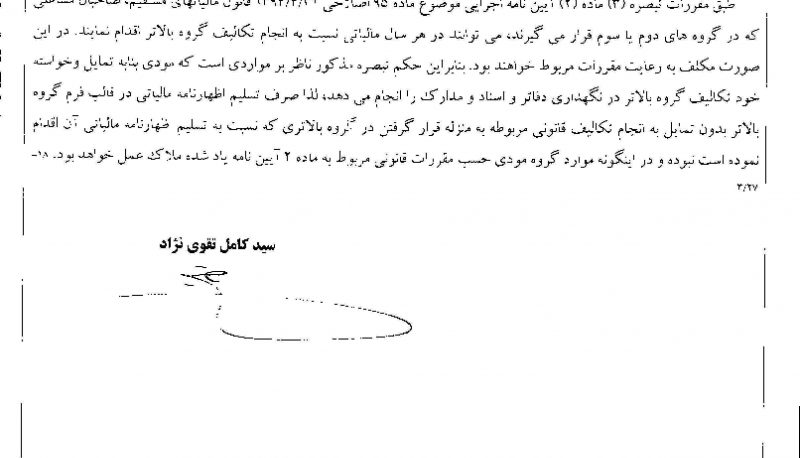 طبق مقررات تبصره (۳) ماده (۲) آیین نامه اجرایی موضوع ماده ۹۵ اصلاحی ۱۳۹۴/۴/۳۱ قانون مالیاتهای مستقیم، صاحبان مشاغلی
که در گروه های دوم یا سوم قرار می گیرند، می توانند در هر سال مالیاتی نسبت به انجام تکالیف گروه بالاتر اقدام نمایند. در این
صورت مکلف به رعایت مقررات مربوط خواهند بود. بنابراین حکم تبصره مذکور ناظر بر مواردی است که مودی بنابه تمایل وخواسته
خود تکالیف گروه بالاتر در نگهداری دفاتر و اسناد و مدارک را انجام می دهد، لذا صرف تسلیم اظهارنامه مالیاتی در قالب فرم گروه
بالاتر بدون تمایل به انجام تکالیف قانونی مربوطه به منزله قرار گرفتن در گروه بالاتری که نسبت به تسلیم ظهارنامه مالیاتی آن اقدام
نموده است نبوده و در اینگونه موارد گروه مودی حسب مقررات قانونی مربوط به ماده ۲ آیین نامه یاد شده ملاک عمل خواهد بود. ۱۸-
۳/۲۷
سید کامل تقوی نژاد